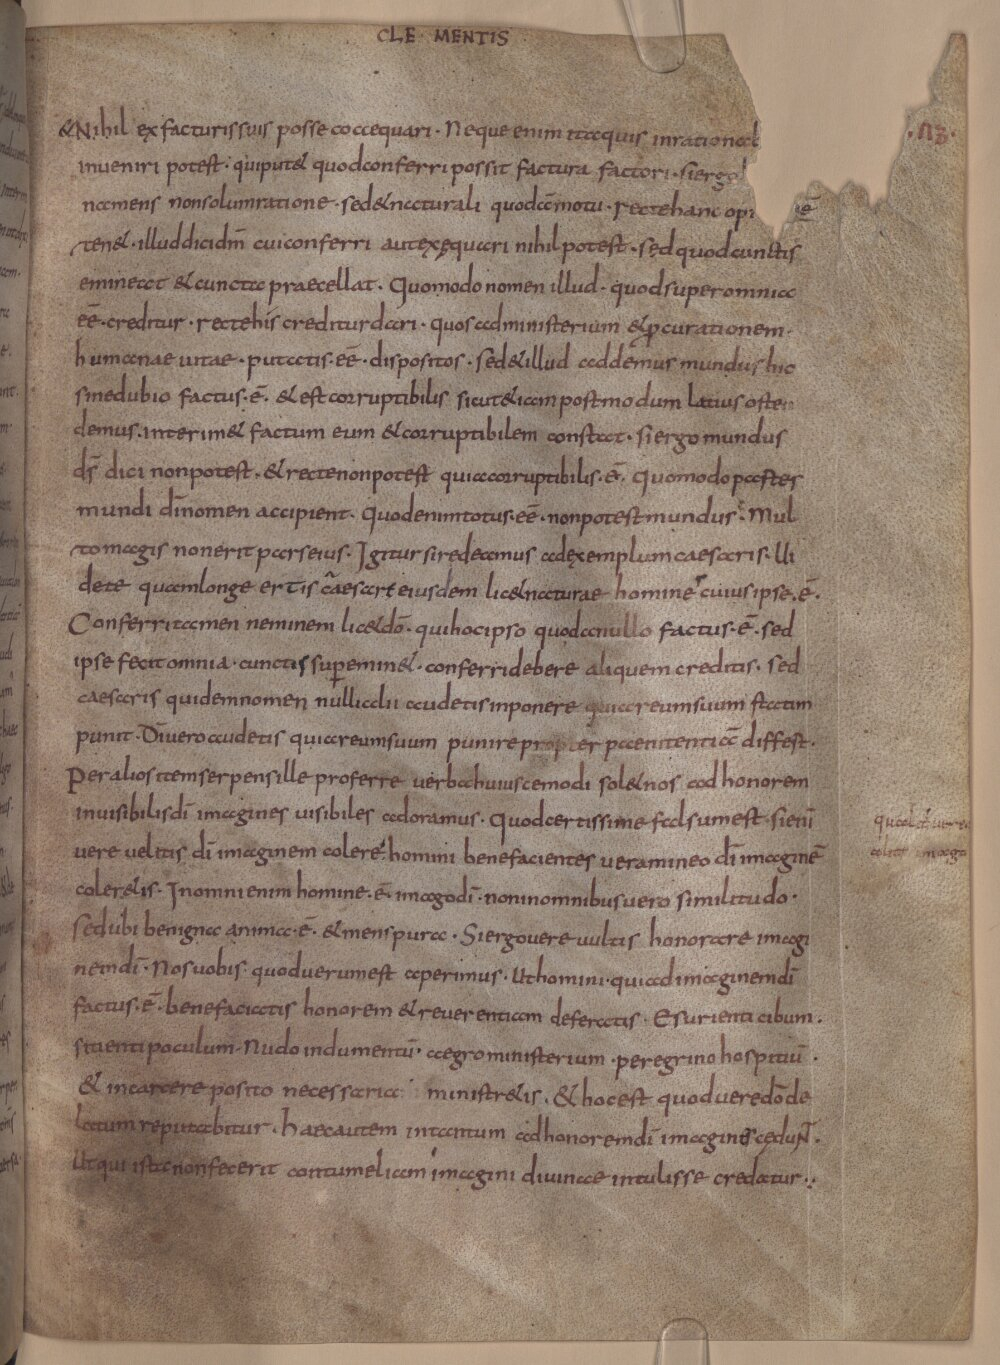 CLEMENTIS
&Nihil ex facturis suis posse coaequari · Neque enim utaquis inrationab
inueniri potest · quiput& quodconferri possit factura factori · siergo
namens nonsolumratione · sed&naturali quodāmotu · rectehanc opi ē
ten& · illuddicidm̄ cuiconferri autexęquari nihilpotest · sedquodcunctis
emineat &cuncta praecellat · Quomodo nomen illud · quodsuperomnia
eē · creditur · rectehis crediturdari · quos administerium &ꝓcurationem ·
humanae uitae · putatis · eē · dispositos · sed&illud addemus mundus hic
sinedubio factus · ē · &est corruptibilis sicut&iam postmodum latius osten
demus · interim& factum eum &corruptibilem constat · siergo mundus
ds̄ dici nonpotest · &recte nonpotest quiacorruptibilis · ē · Quomodo partes
mundi dīnomen accipient · Quodenimtotus · eē · nonpotest mundus · Mul
tomagis nonerit parseius · Igitur siredeamus adexemplumcaesaris · Ui
dete quamlonge ertis cāesare eiusdem lic&naturae homine cuius ipse · ē ·
Conferritamen neminem lic&dō · quihocipso quodanullo factus · ē · sed
ipse fecit omnia · cunctis supemin& · conferridebere aliquem creditis · sed
caesaris quidemnomen nullialii audetisinponere quiareumsuum statim
punit · Dīueroaudetis quiareumsuum punire propter paenitentiā differt ·
Peralios item serpens ille proferre uerbahuiuscemodi sol& nos ad honorem
inuisibilisdī imagines uisibiles adoramus · Quodcertissime falsumest · sienī
uere uelitis dī imaginem colere homini benefacientes ueramineo dī imaginē
coler&is · Inomnienim homine · ē · imagodī · noninomnibusuero similitudo ·
sedubi benigna anima · ē · &menspura · Siergouere uultis honorare imagi
nemdī · Nosuobis quoduerumest aperimus · Uthomini · quiadimaginemdī
factus · ē · benefaciatis honorem &reuerentiam deferatis · Esurienti cibum ·
sitientipoculum · Nudo indumentū · aegroministerium · peregrino hospitiū ·
& incarcere posito necessaria ministr&is · &hocest quoduere dō de
latum reputabitur · haecautem intantum adhonoremdī imaginis cędunt ·
Utqui ista nonfecerit contumeliam imagini diuinae intulisse credatur ·